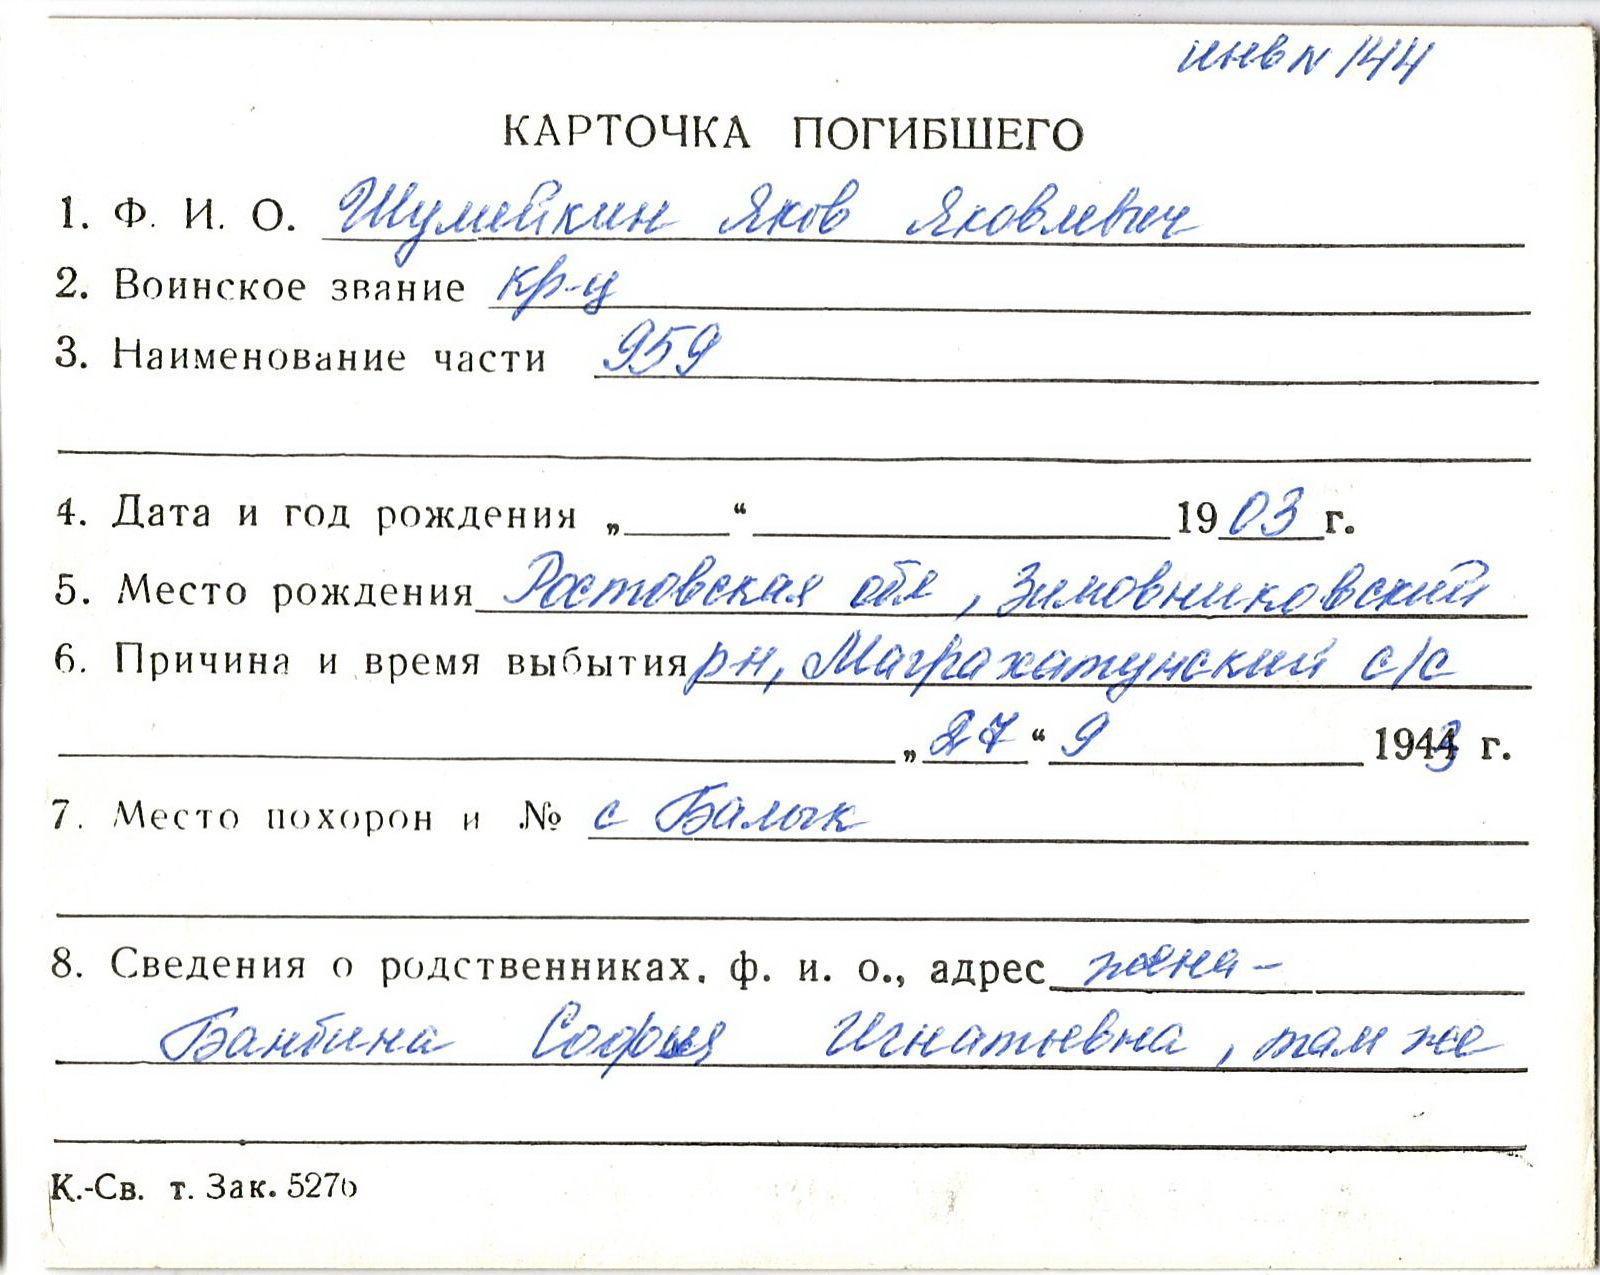 инв N 144
КАРТОЧКА ПОГИБШЕГО
1. Ф. И. О. Шумейкин Яков Яковлевич
2. Воинское звание кр-ц
3. Наименование части 959
4. Дата и год рождения „ “ 1903 г.
5. Место рождения Ростовская обл, Зимовниковский
6. Причина и время выбытия рн, с/с
„27“ 9 1943 г.
7. Место похорон и № с Балык
8. Сведения о родственниках. ф. и. о., адрес жена -
София Игнатьевна, там же
К.-Св. т. Зак. 5276